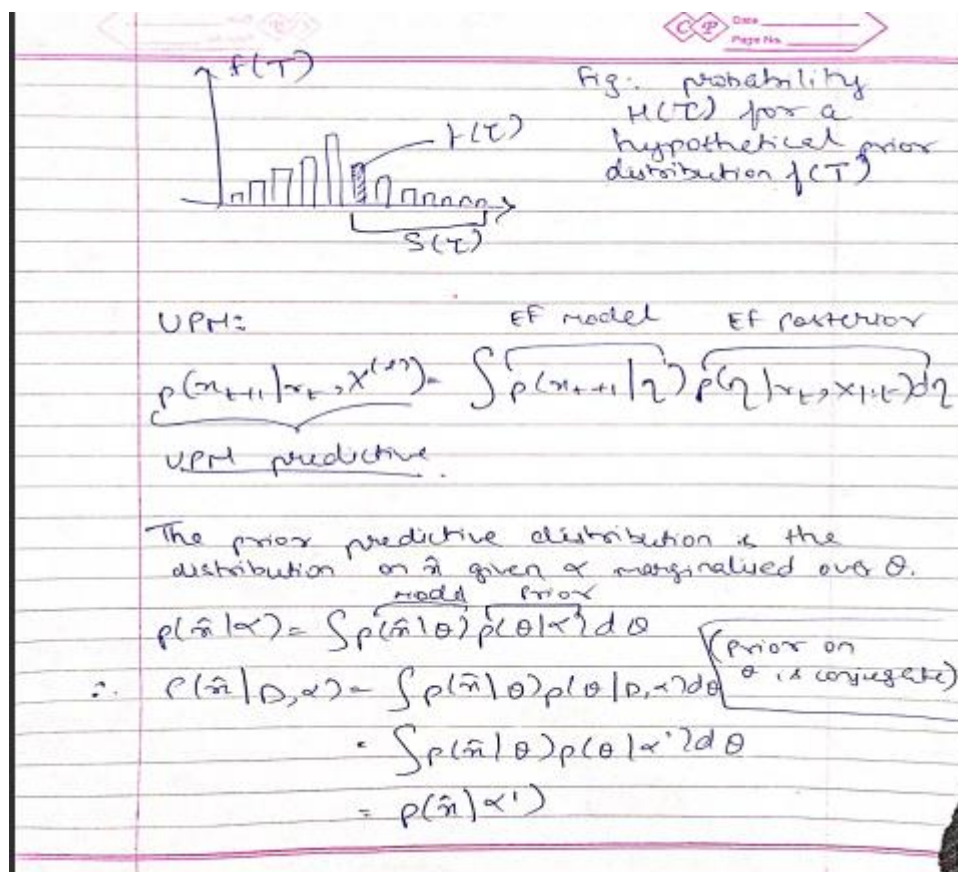 C P Date
Page No.
f(T)
Fig: probability
H(τ) for a
hypothetical prior
distribution f(T)
f(τ)
S(τ)
UPM:
EF model EF Posterior
p(x_{t+1}|r_t, x^{(l)}) = ∫ p(x_{t+1}|η) p(η|r_t, x_{1:t}) dη
UPM predictive.
The prior predictive distribution is the
distribution on x̂ given α marginalised over θ.
model Prior
p(x̂|α) = ∫ p(x̂|θ) p(θ|α) dθ
(Prior on
θ is conjugate)
∴ P(x̂|D,α) = ∫ p(x̂|θ) p(θ|D,α) dθ
= ∫ p(x̂|θ) p(θ|α') dθ
= p(x̂|α')